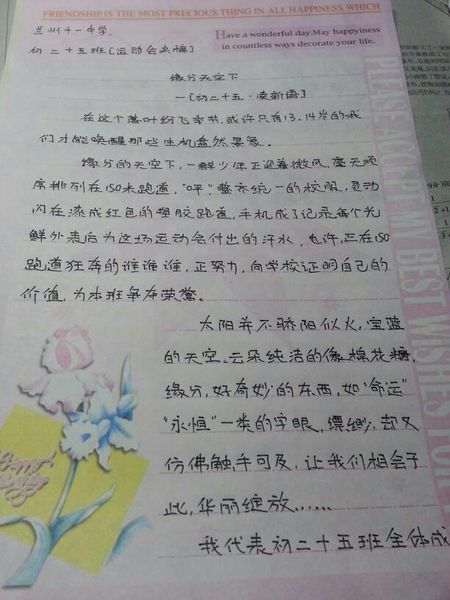 FRIENDSHIP IS THE MOST PRECIOUS THING IN ALL HAPPINESS, WHICH
Have a wonderful day. May happyiness
in countless ways decorate your life.
兰州十一中学,
初二十五班[运动会来稿]
缘分天空下
—[初二十五·凌新语]
在这个落叶纷飞季节,或许只有13.14岁的我
们才能唤醒那些生机盎然景象。
缘分的天空下,一群少年正迎着微风,毫无顺
序排列在150米跑道,“呯”,整齐统一的校服,灵动
闪在漆成红色的塑胶跑道,手机成了记录每个光
鲜外表后为这场运动会付出的汗水,也许,正在150
跑道狂奔的谁谁谁,正努力,向学校证明自己的
价值,为本班争夺荣誉。
太阳并不骄阳似火,宝蓝
的天空,云朵纯洁的像棉花糖,
缘分,好奇妙的东西,如“命运”
“永恒”一类的字眼,缥缈,却又
仿佛触手可及,让我们相会于
此,华丽绽放......
我代表初二十五班全体成
PLEASE ACCEPT MY BEST WISHES FOR